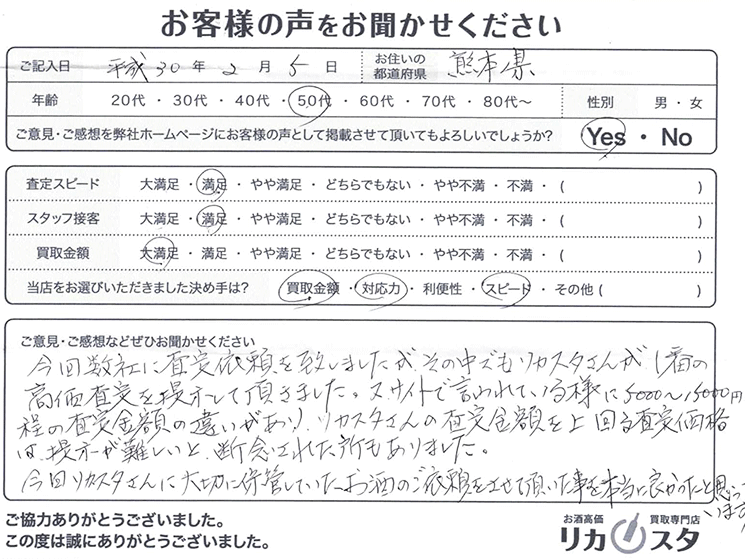 お客様の声をお聞かせください
ご記入日 平成30年2月5日 お住いの都道府県 熊本県
年齢 20代・30代・40代・50代・60代・70代・80代〜 性別 男・女
ご意見・ご感想を弊社ホームページにお客様の声として掲載させて頂いてもよろしいでしょうか? Yes・No
査定スピード 大満足・満足・やや満足・どちらでもない・やや不満・不満・( )
スタッフ接客 大満足・満足・やや満足・どちらでもない・やや不満・不満・( )
買取金額 大満足・満足・やや満足・どちらでもない・やや不満・不満・( )
当店をお選びいただきました決め手は? 買取金額・対応力・利便性・スピード・その他( )
ご意見・ご感想などぜひお聞かせください
今回数社に査定依頼を致しましたが、その中でもリカスタさんが1番の
高価査定を提示して頂きました。又サイトで言われている様に5000〜15000円
程の査定金額の違いがあり、リカスタさんの査定金額を上回る査定価格
は提示が難しいと、断念された所もありました。
今回リカスタさんに大切に保管していたお酒のご依頼をさせて頂いた事を本当に良かったと思って
います。
ご協力ありがとうございました。
この度は誠にありがとうございました。
お酒高価 買取専門店
リカスタ